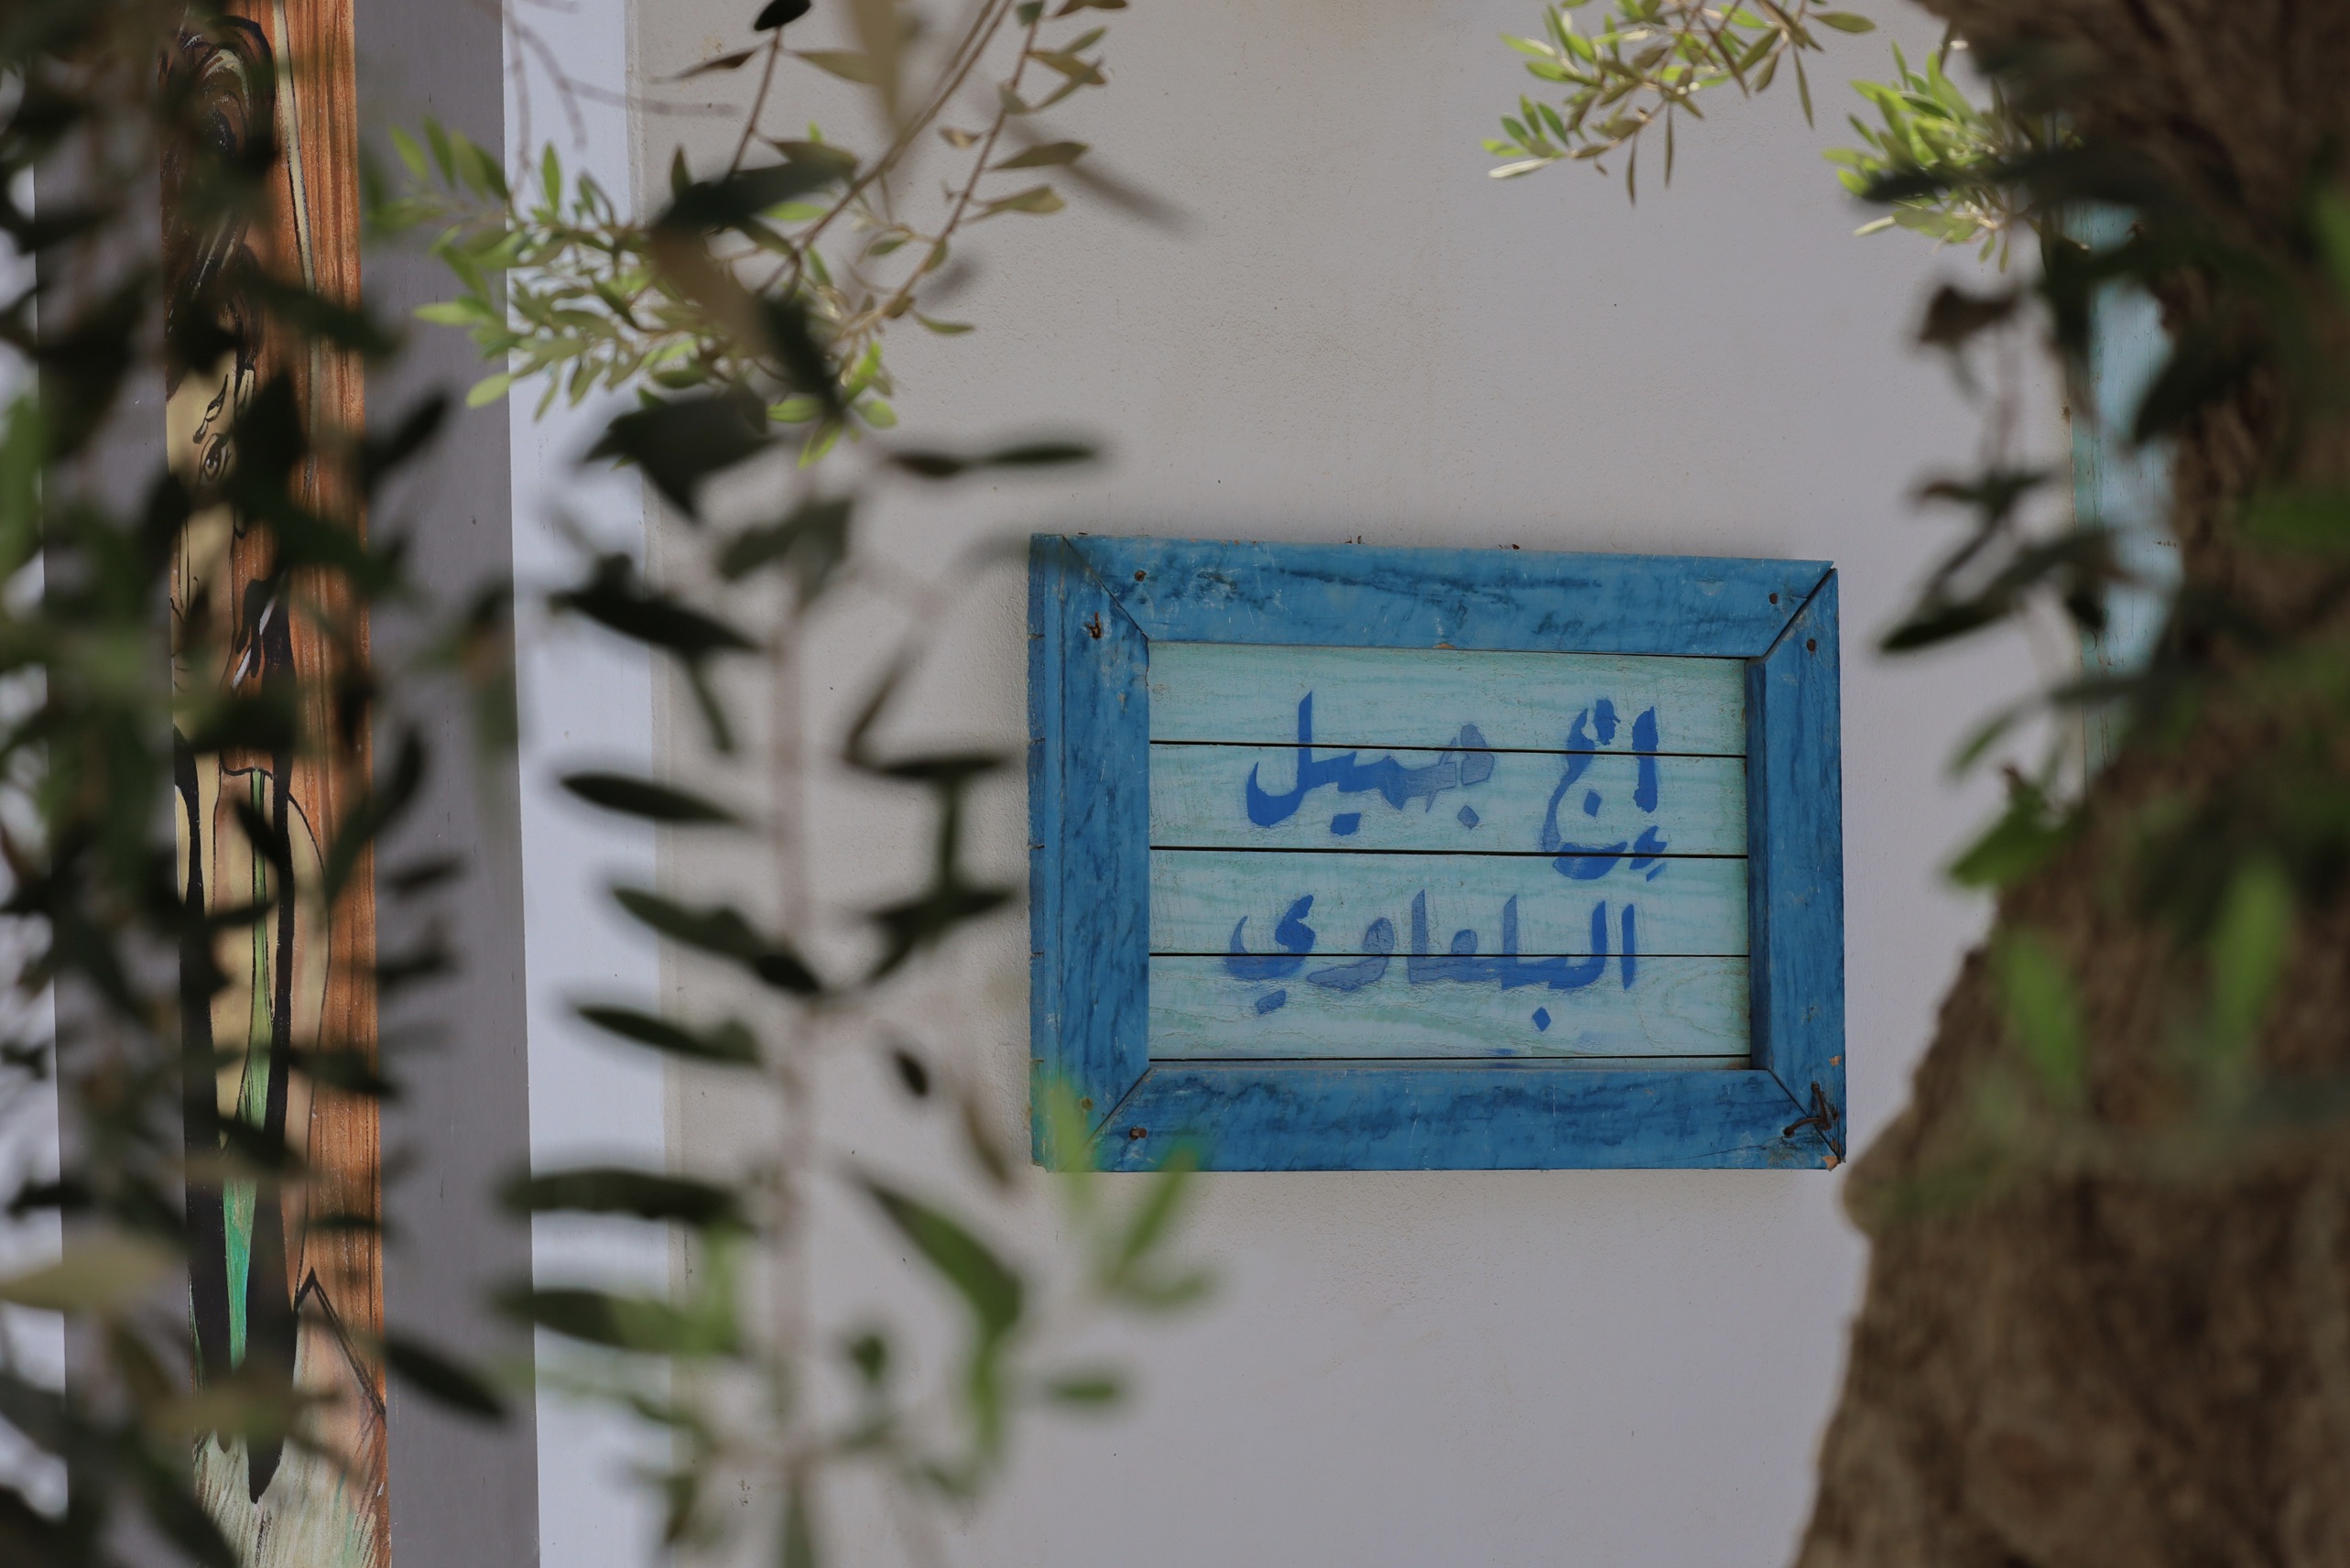 جميل
البلعاوي